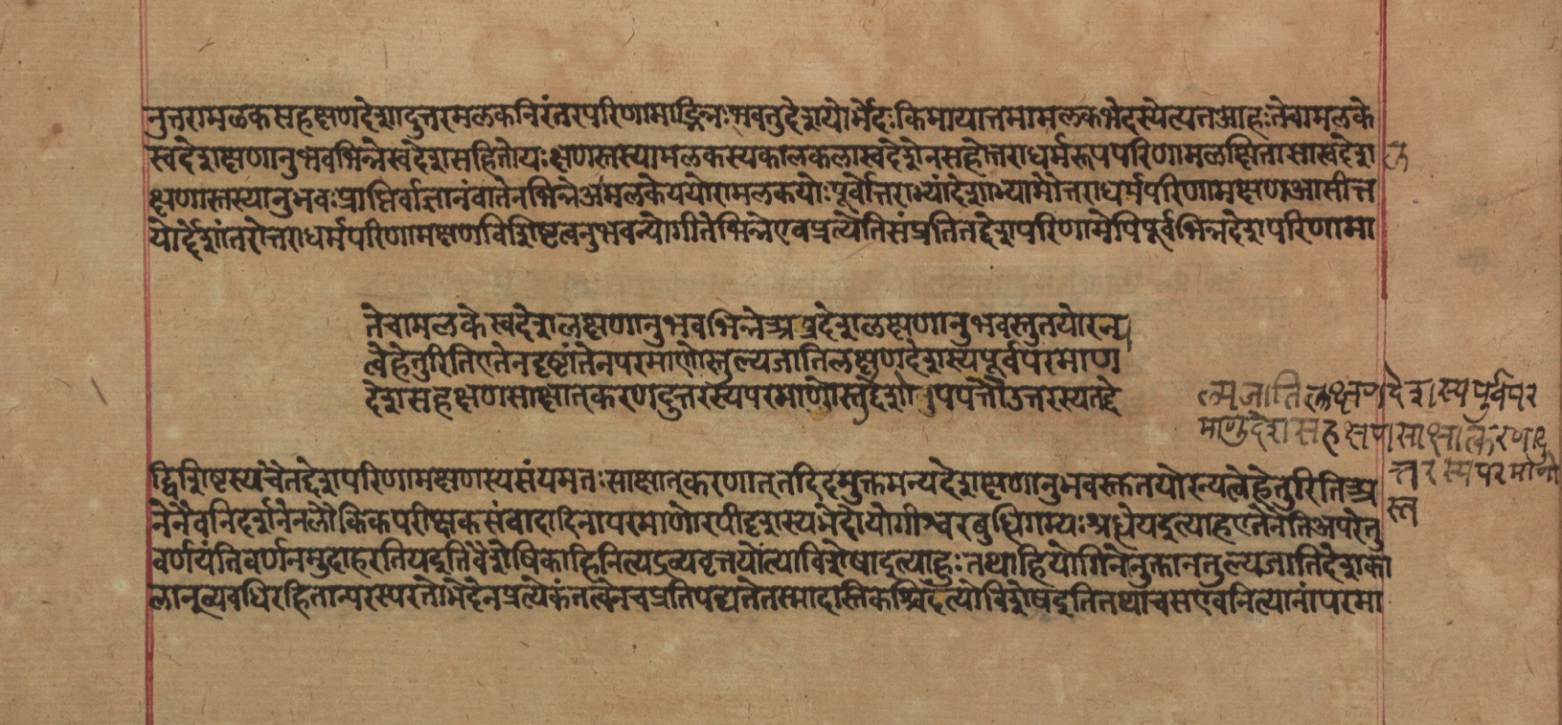 नुत्तरामळकसहक्षणदेशादुत्तरमळकनिरंतरपरिणामाद्भिन्नः भवतु देशयोर्भेदः किमायात्तमामलकभेदस्येत्यत आहः ते चामलके
स्वदेशक्षणानुभवभिन्ने स्वदेशसहितो यः क्षणस्तस्यामलकस्य कालकला स्वदेशेन सहोत्तराधर्मरूपपरिणामळक्षिता सा स्वदेश
क्षणास्तस्यानुभवः प्राप्तिर्वा ज्ञानं वा तेन भिन्ने अमलके ययोरामलकयोः पूर्वोत्तराभ्यां देशाभ्यामोत्तराधर्मपरिणामक्षण आसीत्त
योर्द्देशांतरोत्तराधर्मपरिणामक्षणविशिष्टत्वनुभवन्योगी ते भिन्ने एव प्रत्येति संप्रति तद्देशपरिणामेपि पूर्वभिन्नदेशपरिणामा
ते चामलके स्वदेशलक्षणानुभवभिन्ने अन्यदेशळक्षणानुभवस्तु तयोरन्य
त्वे हेतुरिति एतेन दृष्टांतेन परमाणोस्तुल्यजातिलक्षणदेशस्य पूर्वपरमाण
देशसहक्षणसाक्षात्करणदुत्तरस्य परमाणोस्तद्देशानुपपत्तौ उत्तरस्य तद्दे
ल्यजातिलक्षणदेशस्य पूर्वपर
माणुदेशसहक्षणसाक्षात्करणादु
त्तरस्य परमाणो
स्त
द्विशिष्टस्य चैतद्देशपरिणामक्षणस्य संयमतः साक्षात्करणात् तदिदमुक्तमन्यदेशक्षणानुभवस्त्क तयोरन्यत्वे हेतुरिति अ
नेनैव निदर्शनेन लौकिकपरीक्षकसंवादादिना परमाणोरपीदृशस्य भेदो योगीश्वरबुधिगम्यः श्रधेयदुत्याह एतेनेति अपरे तु
वर्णयंति वर्णनमुदाहरति यदुति वैशेषिका हि नित्यद्रव्यवृत्तयोंत्या विशेषा दुत्याहुः तथा हि योगिनेनुक्तानतुल्यजातिदेशका
लानूव्यवधिरहितान्परस्परतो भेदेन प्रत्येकं तत्वेन च प्रतिपद्यते तस्मादास्ति कश्चिदंत्यो विशेष दुति तथा च स एव नित्यानां परमा